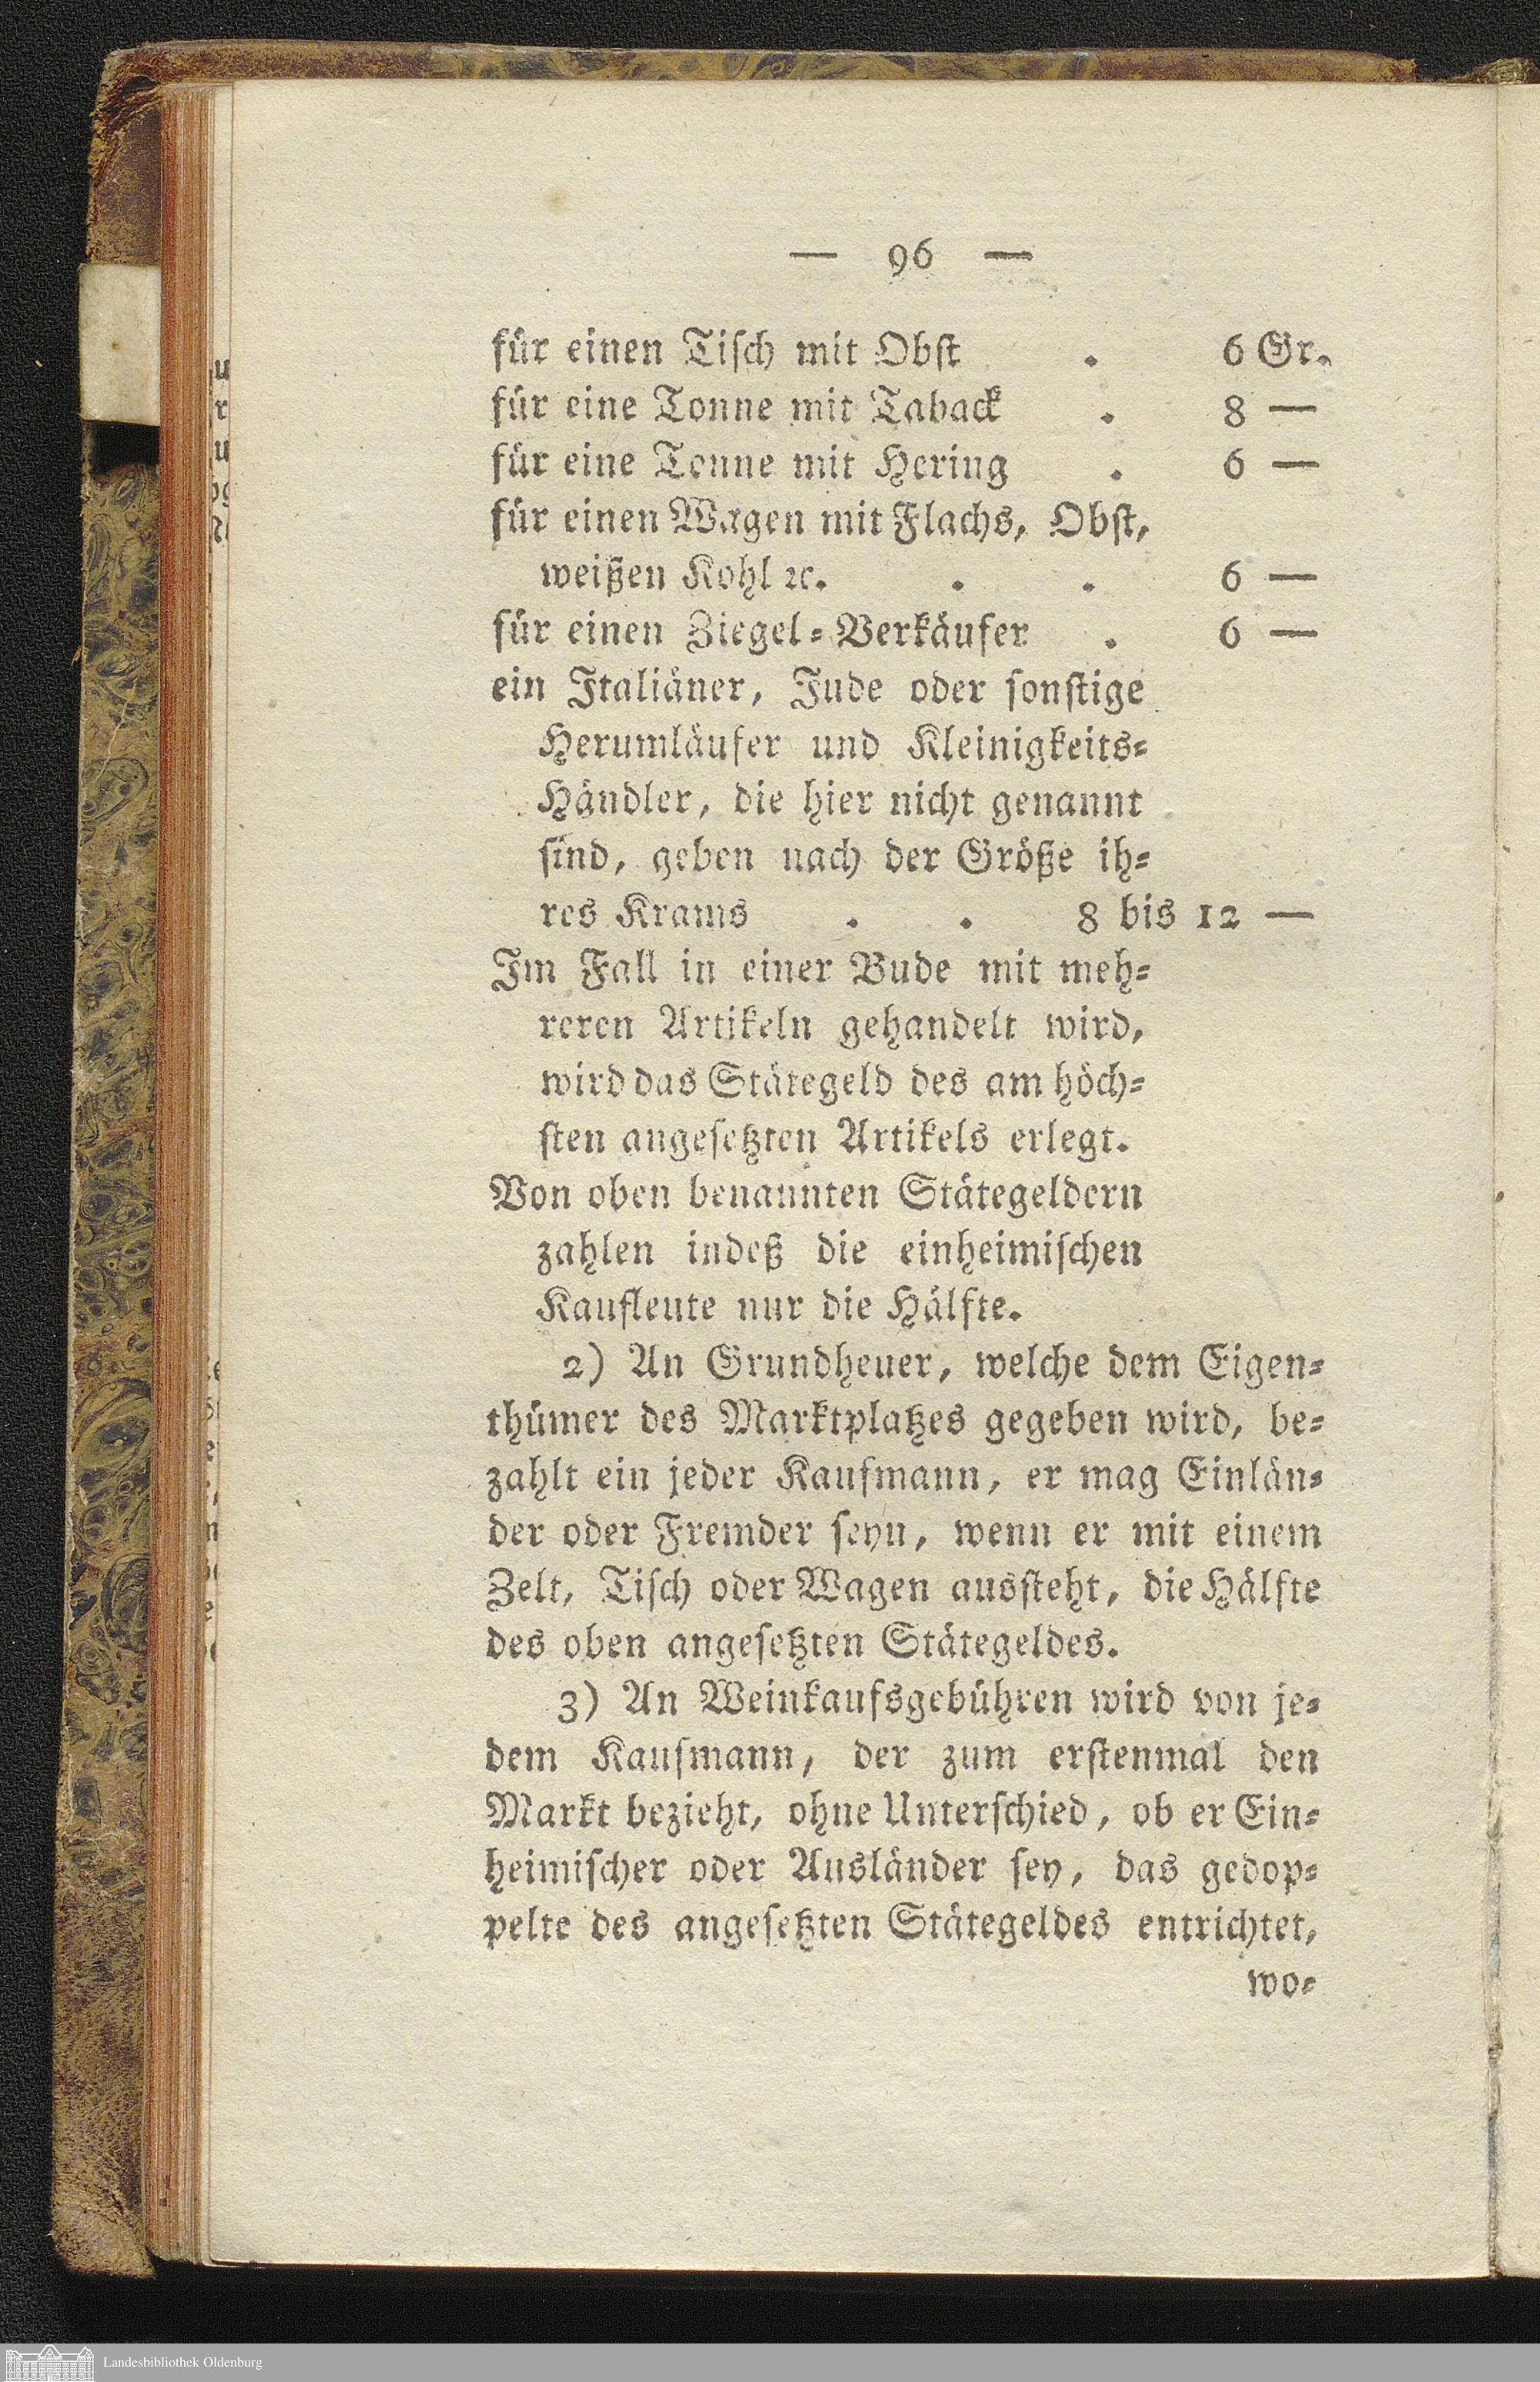 — 96 —
für einen Tisch mit Obst . 6 Gr.
für eine Tonne mit Taback . 8 —
für eine Tonne mit Hering . 6 —
für einen Wagen mit Flachs, Obst,
weißen Kohl ꝛc. . . 6 —
für einen Ziegel-Verkäufer . 6 —
ein Italiäner, Jude oder sonstige
Herumläufer und Kleinigkeits-
Händler, die hier nicht genannt
sind, geben nach der Größe ih-
res Krams . . 8 bis 12 —
Im Fall in einer Bude mit meh-
reren Artikeln gehandelt wird,
wird das Stätegeld des am höch-
sten angesetzten Artikels erlegt.
Von oben benannten Stätegeldern
zahlen indeß die einheimischen
Kaufleute nur die Hälfte.
2) An Grundheuer, welche dem Eigen-
thümer des Marktplatzes gegeben wird, be-
zahlt ein jeder Kaufmann, er mag Einlän-
der oder Fremder seyn, wenn er mit einem
Zelt, Tisch oder Wagen aussteht, die Hälfte
des oben angesetzten Stätegeldes.
3) An Weinkaufsgebühren wird von je-
dem Kaufmann, der zum erstenmal den
Markt bezieht, ohne Unterschied, ob er Ein-
heimischer oder Ausländer sey, das gedop-
pelte des angesetzten Stätegeldes entrichtet,
wo-
Landesbibliothek Oldenburg